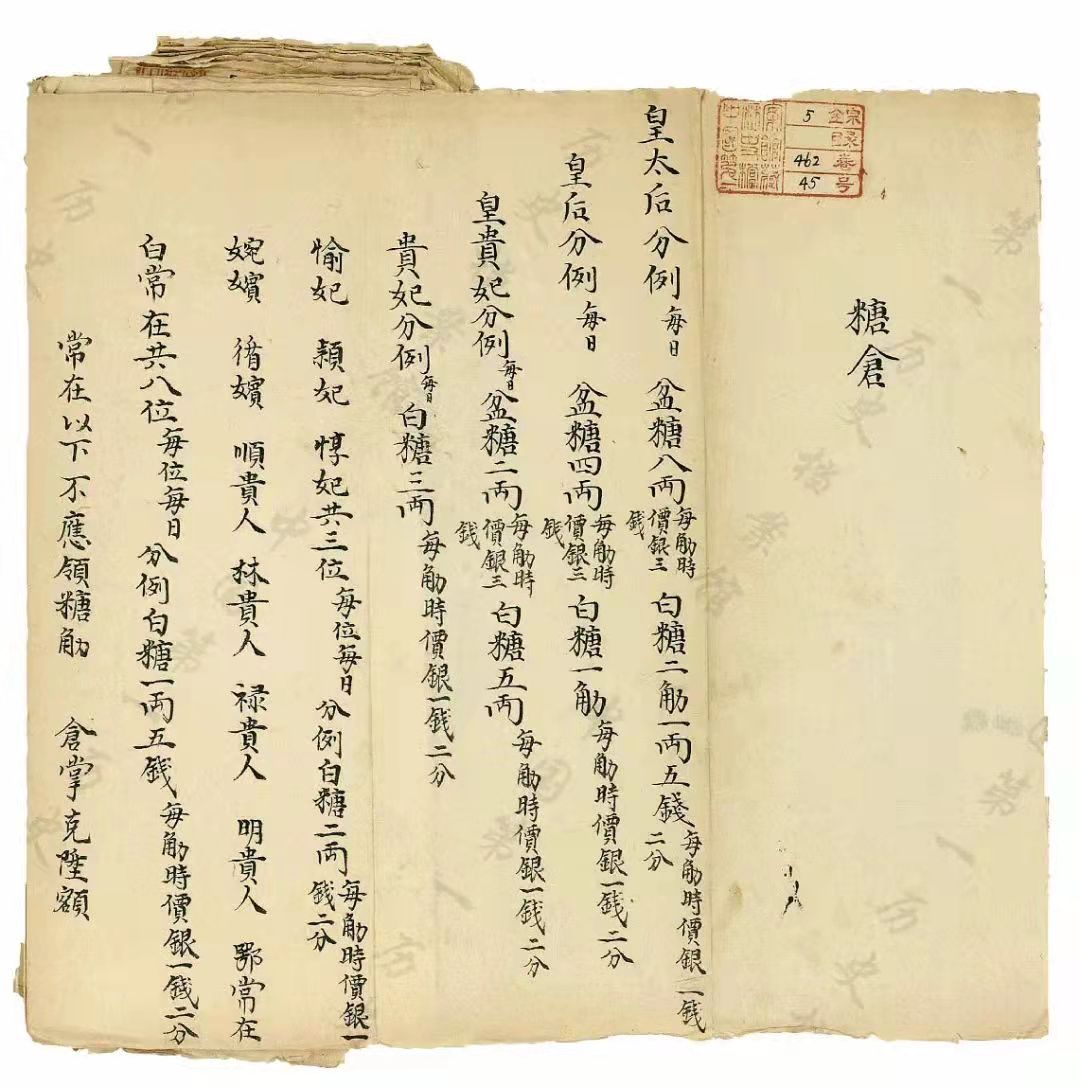 錄號番号
5
462
45
糖倉
皇太后分例每日 盆糖八両每觔時價銀三錢 白糖二觔一両五錢每觔時價銀一錢二分
皇后分例每日 盆糖四両每觔時價銀三錢 白糖一觔每觔時價銀一錢二分
皇貴妃分例每日盆糖二両每觔時價銀三錢 白糖五両每觔時價銀一錢二分
貴妃分例每日白糖三両每觔時價銀一錢二分
愉妃 頴妃 惇妃共三位每位每日分例白糖二両每觔時價銀一錢二分
婉嬪 循嬪 順貴人 林貴人 禄貴人 明貴人 鄂常在
白常在共八位每位每日分例白糖一両五錢每觔時價銀一錢二分
常在以下不應領糖觔 倉掌克陞額